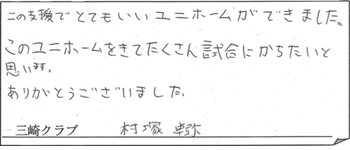 この支援でとてもいいユニホームができました。
このユニホームをきてたくさん試合にかちたいと
思います。
ありがとうございました。
三崎クラブ 村塚 卓弥